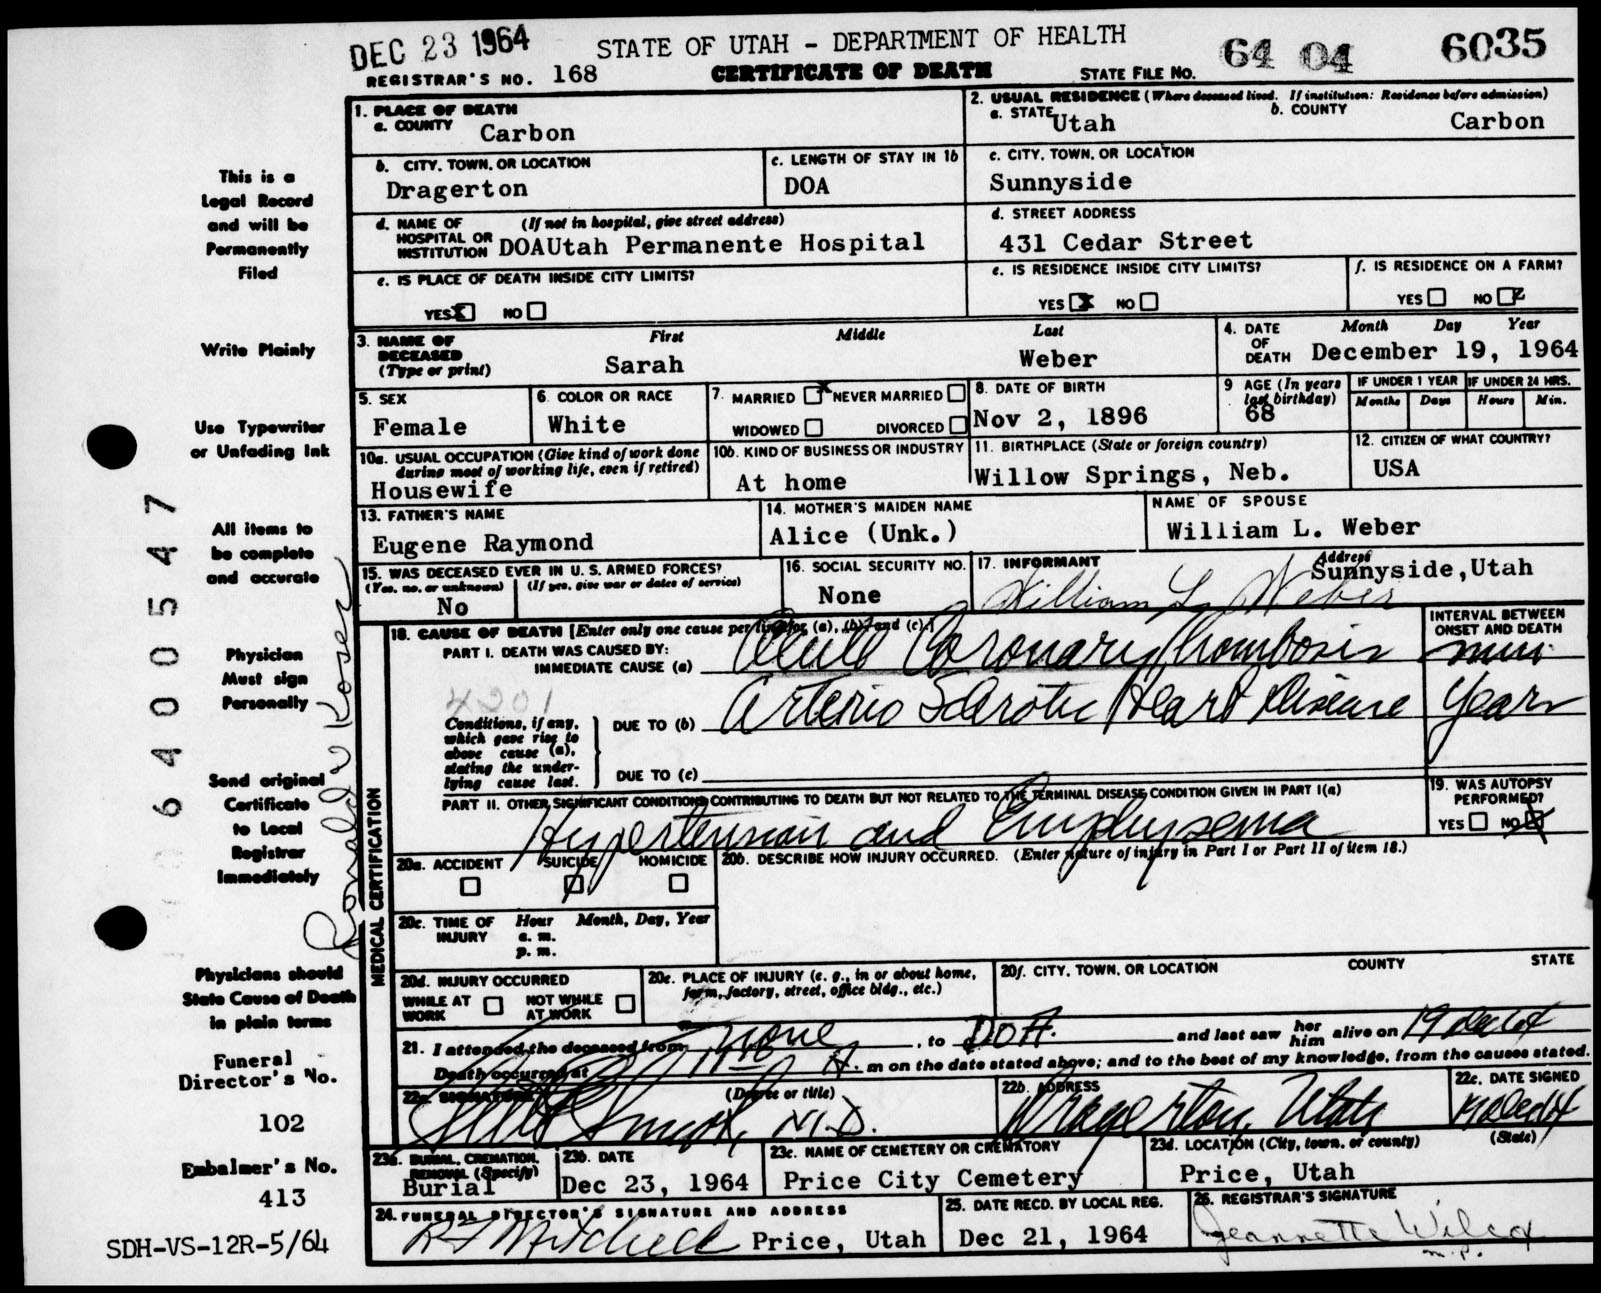 DEC 23 1964
STATE OF UTAH - DEPARTMENT OF HEALTH
64 04 6035
REGISTRAR'S NO. 168
CERTIFICATE OF DEATH
STATE FILE NO.
1. PLACE OF DEATH
a. COUNTY Carbon
2. USUAL RESIDENCE (Where deceased lived. If institution: Residence before admission)
a. STATE Utah b. COUNTY Carbon
b. CITY, TOWN, OR LOCATION
Dragerton
c. LENGTH OF STAY IN 1b
DOA
c. CITY, TOWN, OR LOCATION
Sunnyside
d. NAME OF HOSPITAL OR INSTITUTION (If not in hospital, give street address)
DOAUtah Permanente Hospital
d. STREET ADDRESS
431 Cedar Street
e. IS PLACE OF DEATH INSIDE CITY LIMITS?
YES X NO
e. IS RESIDENCE INSIDE CITY LIMITS?
YES X NO
f. IS RESIDENCE ON A FARM?
YES NO
3. NAME OF DECEASED (Type or print)
First Middle Last
Sarah Weber
4. DATE OF DEATH
Month Day Year
December 19, 1964
5. SEX
Female
6. COLOR OR RACE
White
7. MARRIED X NEVER MARRIED
WIDOWED DIVORCED
8. DATE OF BIRTH
Nov 2, 1896
9 AGE (In years last birthday)
68
IF UNDER 1 YEAR
Months Days
IF UNDER 24 HRS.
Hours Min.
10a. USUAL OCCUPATION (Give kind of work done during most of working life, even if retired)
Housewife
10b. KIND OF BUSINESS OR INDUSTRY
At home
11. BIRTHPLACE (State or foreign country)
Willow Springs, Neb.
12. CITIZEN OF WHAT COUNTRY?
USA
13. FATHER'S NAME
Eugene Raymond
14. MOTHER'S MAIDEN NAME
Alice (Unk.)
NAME OF SPOUSE
William L. Weber
15. WAS DECEASED EVER IN U.S. ARMED FORCES?
(Yes, no, or unknown) (If yes, give war or dates of service)
No
16. SOCIAL SECURITY NO.
None
17. INFORMANT
William L. Weber
Address
Sunnyside, Utah
18. CAUSE OF DEATH [Enter only one cause per line for (a), (b), and (c).]
INTERVAL BETWEEN ONSET AND DEATH
PART I. DEATH WAS CAUSED BY:
IMMEDIATE CAUSE (a) Acute Coronary Thrombosis min
4201
Conditions, if any, which gave rise to above cause (a), stating the underlying cause last.
DUE TO (b) Arterio Sclerotic Heart Disease Years
DUE TO (c)
PART II. OTHER SIGNIFICANT CONDITIONS CONTRIBUTING TO DEATH BUT NOT RELATED TO THE TERMINAL DISEASE CONDITION GIVEN IN PART I(a)
Hypertension and Emphysema
19. WAS AUTOPSY PERFORMED?
YES NO X
20a. ACCIDENT SUICIDE HOMICIDE
20b. DESCRIBE HOW INJURY OCCURRED. (Enter nature of injury in Part I or Part II of item 18.)
20c. TIME OF INJURY
Hour Month, Day, Year
a. m.
p. m.
20d. INJURY OCCURRED
WHILE AT WORK NOT WHILE AT WORK
20e. PLACE OF INJURY (e. g., in or about home, farm, factory, street, office bldg., etc.)
20f. CITY, TOWN, OR LOCATION COUNTY STATE
21. I attended the deceased from none, to DOA. and last saw her him alive on 19 Dec 64
Death occurred at A. m on the date stated above; and to the best of my knowledge, from the causes stated.
22a. SIGNATURE (Degree or title)
Smoot, M.D.
22b. ADDRESS
Dragerton, Utah
22c. DATE SIGNED
23a. BURIAL, CREMATION, REMOVAL (Specify)
Burial
23b. DATE
Dec 23, 1964
23c. NAME OF CEMETERY OR CREMATORY
Price City Cemetery
23d. LOCATION (City, town, or county) (State)
Price, Utah
24. FUNERAL DIRECTOR'S SIGNATURE AND ADDRESS
R F Mitchell Price, Utah
25. DATE RECD. BY LOCAL REG.
Dec 21, 1964
26. REGISTRAR'S SIGNATURE
Jeannette Wilcox
m.p.
MEDICAL CERTIFICATION
This is a
Legal Record
and will be
Permanently
Filed
Write Plainly
Use Typewriter
or Unfading Ink
All items to
be complete
and accurate
Physician
Must sign
Personally
Send original
Certificate
to Local
Registrar
Immediately
Physicians should
State Cause of Death
in plain terms
Funeral
Director's No.
102
Embalmer's No.
413
SDH-VS-12R-5/64
6400547
Ronald